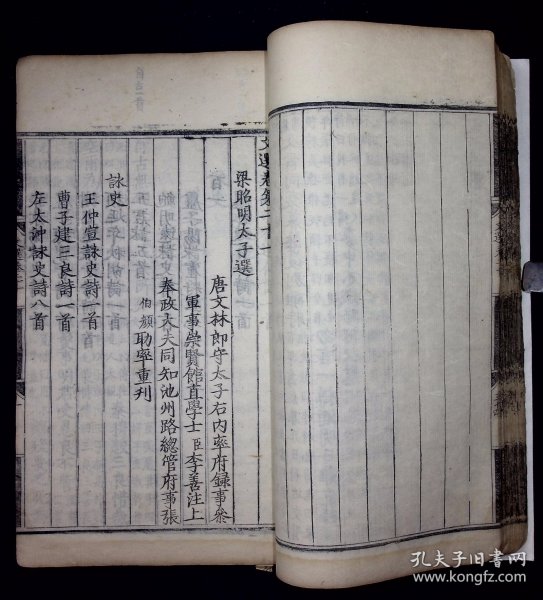 文選卷第二十一
梁昭明太子選
唐文林郎守太子右內率府録事叅
軍事崇賢館直學士臣李善注上
奉政大夫同知池州路總管府事張
伯顔助率重刊
詠史
王仲宣詠史詩一首
曹子建三良詩一首
左太沖詠史詩八首
孔夫子旧书网
www.kongfz.com